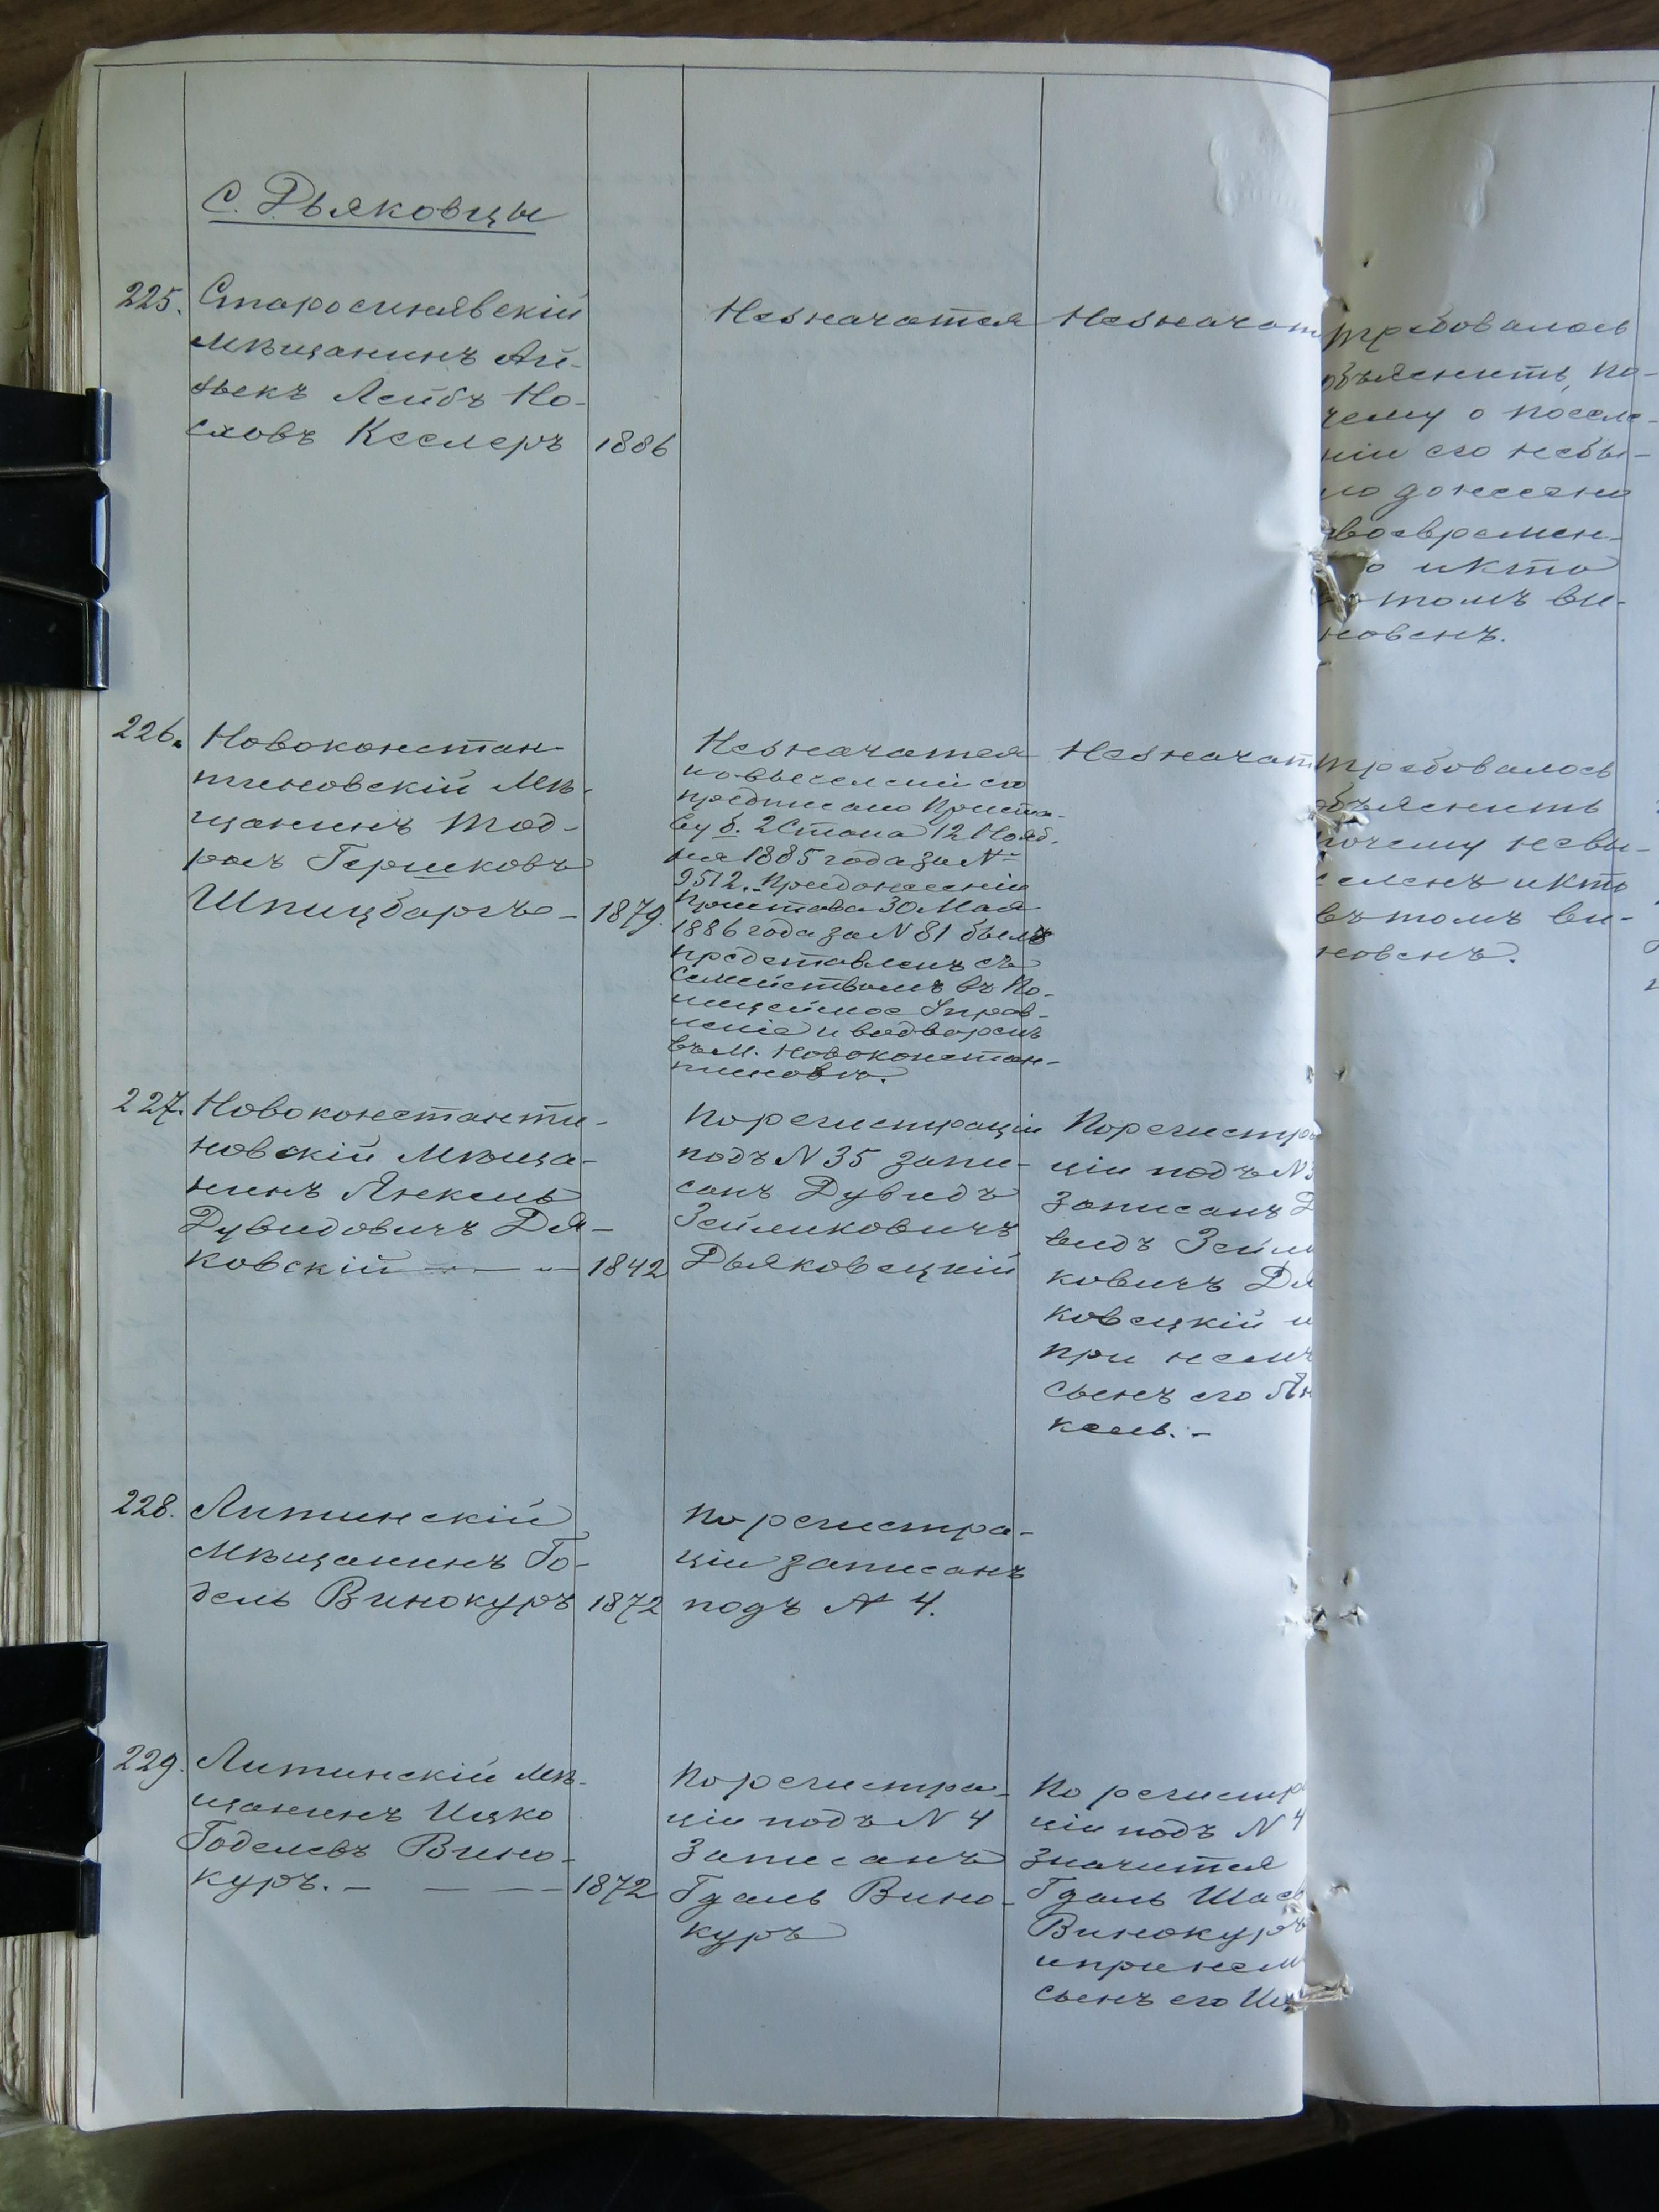 С. Дьяковцы
225. Старосинявскій
мѣщанинъ Ай-
зыкъ Лейбъ Но-
сховъ Кеслеръ 1886
Незначатся
Незначат
требовалось
объяснить, по-
чему о поселе-
ніи его небы-
ло донесено
своевремен-
о икто
томъ ви-
новенъ.
226. Новоконстан-
тиновскій мѣ-
щанинъ Тод-
рас Гершковъ
Шпицбаргъ - 1879.
Незначатся
повыселеніи его
предписано Приста-
ву б. 2 Стана 12 Нояб.
ря 1885 года за №
9512. Придонесеніи
Пристава 30 Мая
1886 года за N 81 былъ
представленъ съ
Семействомъ въ По-
лицейское Управ-
леніе и водворенъ
въ М. Новоконстан-
тиновъ.
Незначат
требовалось
объяснить
почему невы-
селенъ икто
въ томъ ви-
новенъ.
227. Новоконстанти-
новскій мѣща-
нинъ Янкель
Дувидовичъ Дья-
ковскій - - - 1842
По регистраціи
подъ N 35 запи-
санъ Дувидъ
Зейликовичъ
Дьяковецкій
По регистра
ціи подъ N 3
записанъ Д
видъ Зейли
ковичъ Дья
ковецкій и
при немъ
сынъ его Ян
кель. -
228. Литинскій
мѣщанинъ Го-
дель Винокуръ 1872
По регистра-
ціи записанъ
подъ N 4.
229. Литинскій мѣ-
щанинъ Ицко
Годелевъ Вино-
куръ. - - - - 1872
По регистра-
ціи подъ N 4
Записанъ
Гдаль Вино-
куръ
По регистр
ціи подъ N 4
значится
Гдаль
Винокуръ
и при нем
сынъ его Иц